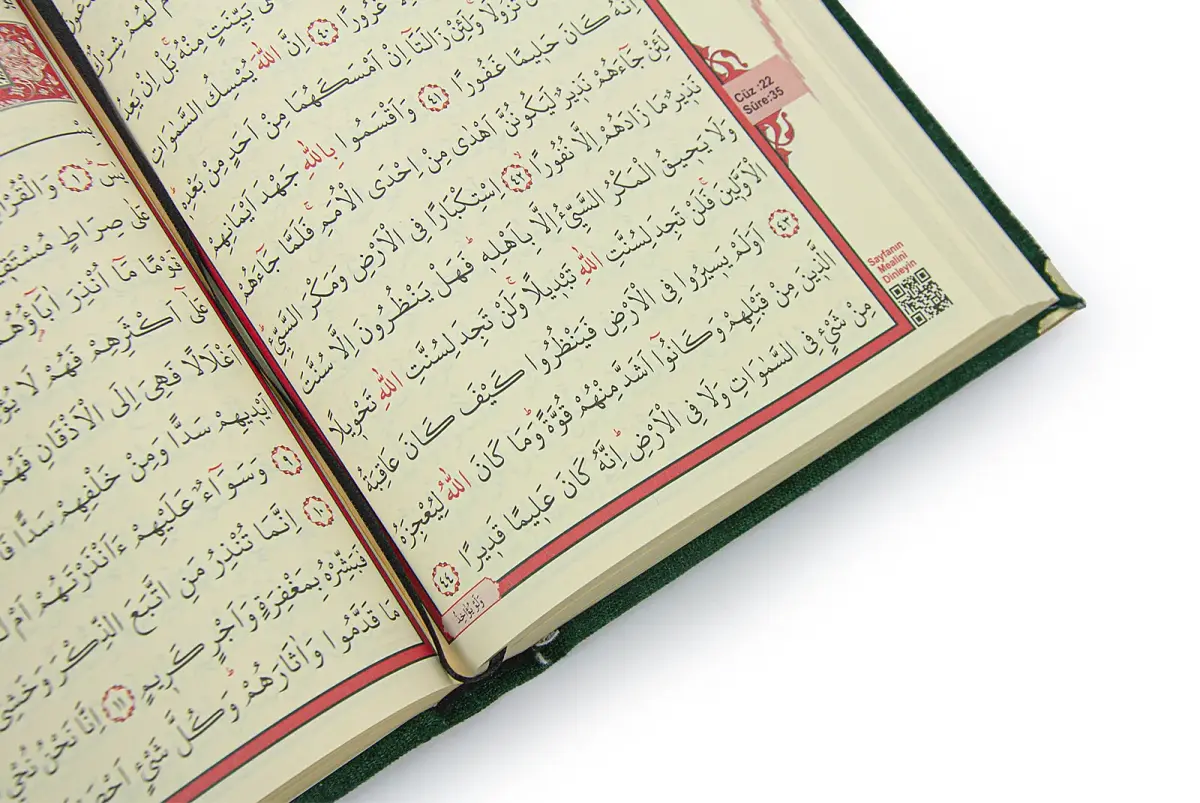 لَهُمْ شِرْكٌ
بَيِّنَتٍ مِنْهُ بَلْ اِنْ يَعِدُ
غُرُورًا ٤٠ اِنَّ اللّٰهَ يُمْسِكُ السَّمٰوَاتِ
تَزُولَا وَلَئِنْ زَالَتَٓا اِنْ اَمْسَكَهُمَا مِنْ اَحَدٍ مِنْ بَعْدِه۪
اِنَّهُ كَانَ حَل۪يمًا غَفُورًا ٤١ وَاَقْسَمُوا بِاللّٰهِ جَهْدَ اَيْمَانِهِمْ
لَئِنْ جَٓاءَهُمْ نَذ۪يرٌ لَيَكُونُنَّ اَهْدٰى مِنْ اِحْدَى الْاُمَمِ فَلَمَّا جَٓاءَهُمْ
نَذ۪يرٌ مَا زَادَهُمْ اِلَّا نُفُورًا ٤٢ اِسْتِكْبَارًا فِي الْاَرْضِ وَمَكْرَ السَّيِّئِ
وَلَا يَح۪يقُ الْمَكْرُ السَّيِّئُ اِلَّا بِاَهْلِه۪ فَهَلْ يَنْظُرُونَ اِلَّا سُنَّتَ
الْاَوَّل۪ينَ فَلَنْ تَجِدَ لِسُنَّتِ اللّٰهِ تَبْد۪يلًا وَلَنْ تَجِدَ لِسُنَّتِ اللّٰهِ تَحْو۪يلًا
٤٣ اَوَلَمْ يَس۪يرُوا فِي الْاَرْضِ فَيَنْظُرُوا كَيْفَ كَانَ عَاقِبَةُ
الَّذ۪ينَ مِنْ قَبْلِهِمْ وَكَانُٓوا اَشَدَّ مِنْهُمْ قُوَّةً وَمَا كَانَ اللّٰهُ لِيُعْجِزَهُ
مِنْ شَيْءٍ فِي السَّمٰوَاتِ وَلَا فِي الْاَرْضِ اِنَّهُ كَانَ عَل۪يمًا قَد۪يرًا ٤٤
وَلَوْ يُؤَاخِذُ
Cüz :22
Sûre:35
Sayfanın
Mealini
Dinleyin
يٰسٓ ١ وَالْقُرْاٰ
عَلٰى صِرَاطٍ مُسْتَق۪ي
قَوْمًا مَٓا اُنْذِرَ اٰبَٓاؤُهُمْ
عَلٰٓى اَكْثَرِهِمْ فَهُمْ لَا يُؤْ
اَغْلَالًا فَهِيَ اِلَى الْاَذْقَانِ فَهُمْ
اَيْد۪يهِمْ سَدًّا وَمِنْ خَلْفِهِمْ سَدًّا فَا
٩ وَسَوَٓاءٌ عَلَيْهِمْ ءَاَنْذَرْتَهُمْ اَمْ لَ
١٠ اِنَّمَا تُنْذِرُ مَنِ اتَّبَعَ الذِّكْرَ وَخَشِيَ
فَبَشِّرْهُ بِمَغْفِرَةٍ وَاَجْرٍ كَر۪يمٍ ١١ اِنَّا نَحْنُ نُحْيِ
مَا قَدَّمُوا وَاٰثَارَهُمْ وَكُلَّ شَيْءٍ اَحْصَ